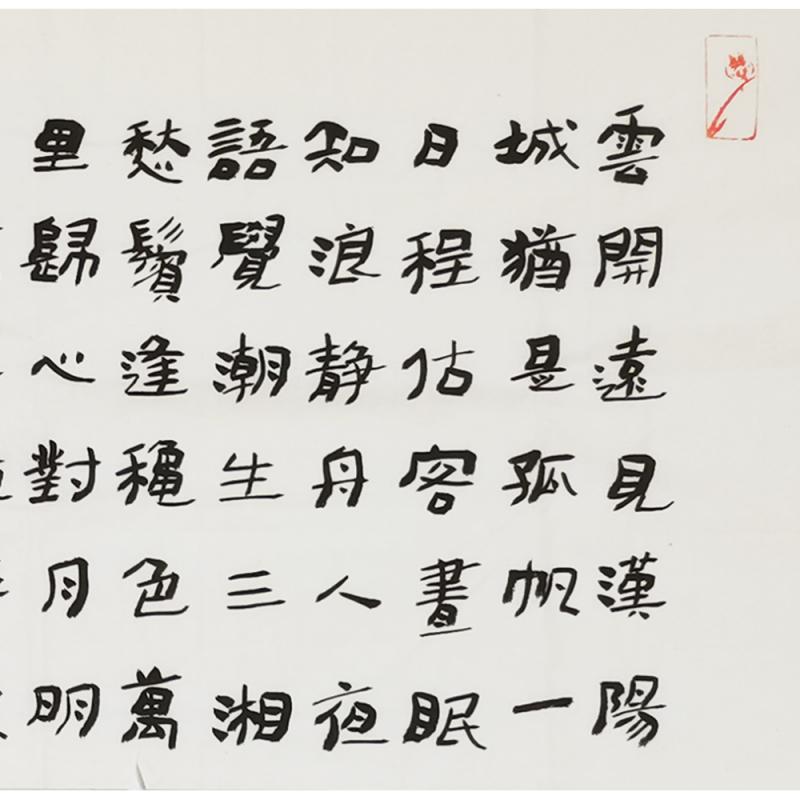 雲開遠見漢陽
城猶是孤帆一
日程估客晝眠
知浪静舟人夜
語覺潮生三湘
愁鬢逢穐色萬
里歸心對月明